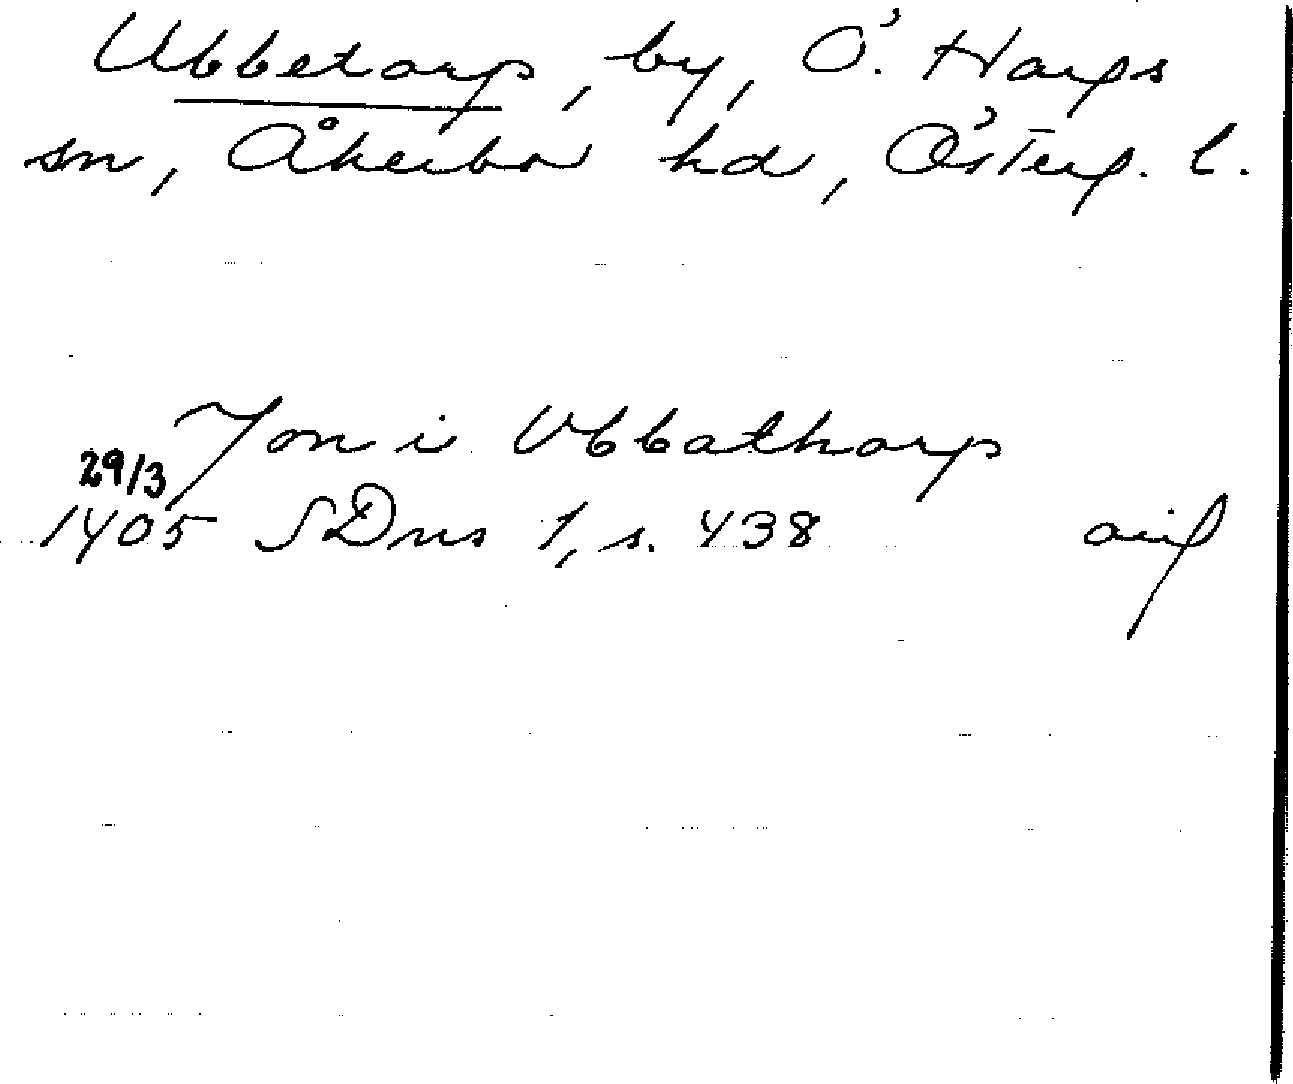 Ubbetorp, by, Ö. Hargs
sn, Åkerbo hd, Österg. l.
Jon i Vbbathorp
29/3
1405 SDns 1, s. 438 avig